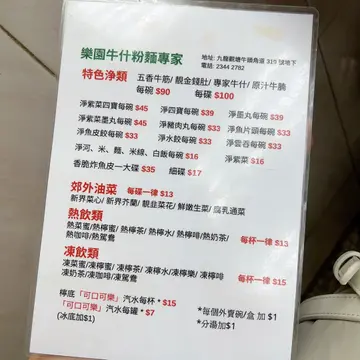 樂園牛什粉麵專家
地址: 九龍觀塘牛頭角道 319 號地下
電話: 2344 2782
特色淨類 五香牛筋/ 靚金錢肚/ 專家牛什/ 原汁牛腩
每碗 $90 每碟 $100
淨紫菜四寶每碗 $45 淨四寶每碗 $39 淨墨丸每碗 $39
淨紫菜墨丸每碗 $45 淨豬肉丸每碗 $33 淨魚片頭每碗 $33
淨魚皮餃每碗 $33 淨水餃每碗 $33 淨雲吞每碗 $33
淨河、米、麵、米線、白飯每碗 $16 淨紫菜 $16
香脆炸魚皮一大碟 $35 細碟 $17
郊外油菜 每碟一律 $13
新界菜心/ 新界芥蘭/ 靚韭菜花/ 鮮嫩生菜/ 腐乳通菜
熱飲類
熱菜蜜/ 熱檸蜜/ 熱檸茶/ 熱檸水/ 熱檸啡/ 熱奶茶/ 每杯一律 $13
熱咖啡/熱鴛鴦
凍飲類
凍菜蜜/ 凍檸蜜/ 凍檸茶/ 凍檸水/ 凍檸樂/ 凍檸啡 每杯一律 $15
凍奶茶/ 凍咖啡/凍鴛鴦
檸底「可口可樂」汽水每杯 * $15
「可口可樂」汽水每罐 * $7
(冰底加$1)
*每個外賣碗/盒 加 $1
*分湯加$1